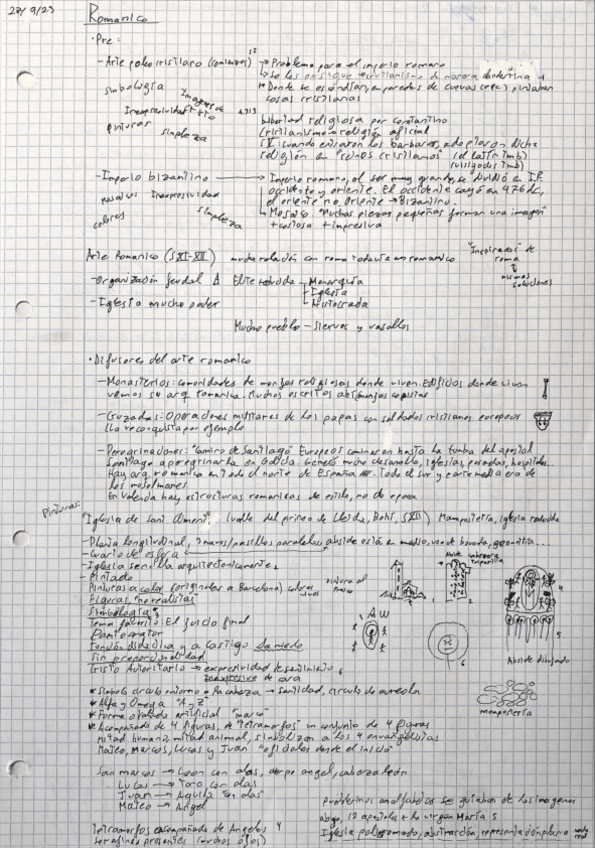 28/9/23
Romanico
• Pre:
- Arte paleocristiano (comienzos)
→ Problema para el imperio romano
simbología
Inexpresividad
pinturas
simpleza
cosas cristianas
313
libertad religiosa por constantino
cristianismo → religión oficial
S V: cuando entraron los barbaros, adoptaron dicha
religión en "reinos cristianos"
- Imperio bizantino → Imperio romano, al ser muy grande, se dividió en I.R
occidente y oriente. El occidente cayó en 476 dc,
el oriente no. Oriente → Bizantino.
Mosaicos Inexpresividad
colores simpleza
Mosaico "Muchas piezas pequeñas forman una imagen"
+ costosa + impresiva
Arte Romanico (S XI-XII) mucha relación con roma todavia en romanico
"Inspirados" de
roma
mismas
soluciones
- Organización feudal Δ Elite reducida
- Monarquía
- Iglesia
- Aristocracia
- Iglesia mucho poder
Mucho pueblo - siervos y vasallos
• Difusores del arte romanico
- Monasterios: comunidades de monjes religiosas donde viven. Edificios donde viven
vemos su arq romanica. Muchos escritos
- Cruzadas: Operaciones militares de los papas con soldados cristianos europeos
(la reconquista por ejemplo
- Peregrinaciones: "Camino de Santiago" Europeos caminaron hasta la tumba del apostol
Santiago a peregrinarla en Galicia. Generó mucho desarrollo, iglesias, posadas, hospitales...
Hay arq. romanica en todo el norte de España. Todo el sur y parte media era de
los musulmanes.
En Valencia hay estructuras romanicas de estilo, no de epoca
Pinturas:
"Iglesia de Sant Climent", (valle del pirineo de Lleida, Bohí, S XII) Mampostería, iglesia reducida
- Planta longitudinal, 3 naves/pasillos paralelas, abside está en medio, uso de boveda, geometria...
- Cuarto de esfera
- Iglesia sencilla arquitectonicamente
- Pintado
Pinturas a color (originales a Barcelona) colores vivos
pintura al
fresco
Planas, "no realistas"
Simbología
Tema favorito: El juicio final
Pantocrator
Función didactica y a castigo da miedo
Sin proporcionalidad
Cristo Autoritario → expresividad de sentimiento
inexpresivo de cara
6
* Simbolo circulo entorno a la cabeza → santidad, circulo de aureola
* Alfa y Omega "A y Z"
* Forma ovalada artificial "marco"
* Acompañado de 4 figuras, de "tetramorfos" un conjunto de 4 figuras
mitad humano, mitad animal, simbolizan a los 4 envangelistas
Mateo, Marcos, Lucas y Juan "oficiales desde el inicio"
Abside
A W
Abside dibujado
mamposteria
San marcos → Leon con alas, cuerpo angel, cabeza león
Lucas → Toro con alas
Juan → Aguila "con alas"
Mateo → Angel
Tetramorfos acompañado de Angeles 4
Serafines presentes (muchos ojos)
Pueblerinos analfabetos se guiaban de las imagenes
abajo, 12 apostoles + la virgen María 5
Iglesia policromado, abstracción, representación plana nada real